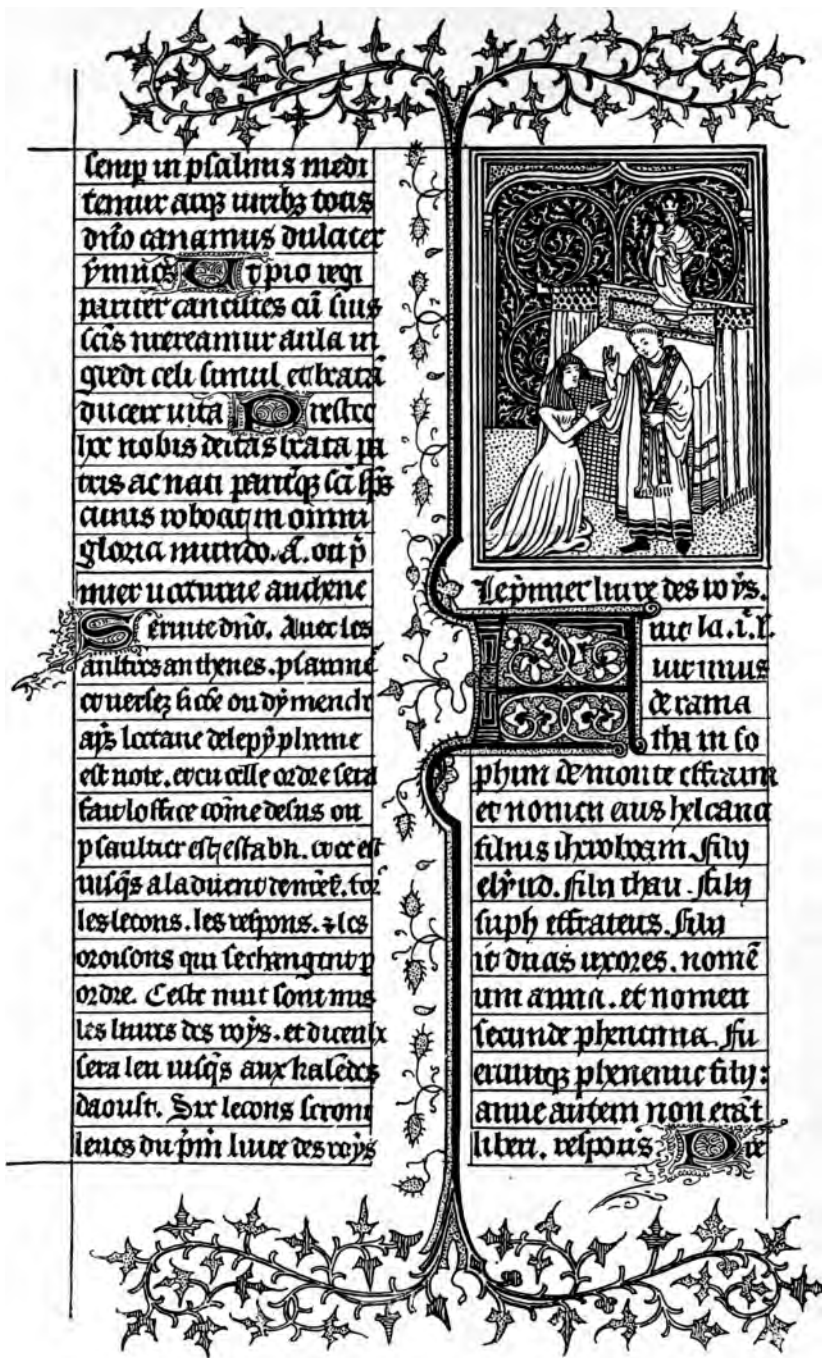 semp in psalmis medi
temur atqꝫ uiribꝫ totis
dn̄o canamus dulciter
ẏmnos Ut pio regi
pariter canentes cū suis
scīs mereamur aula in
gredi celi simul et beatā
ducere uitā Prestet
hoc nobis deitas beata pa
tris ac nati pariterqꝫ scī sp̄s
cuius in omni
gloria mundo. A. ou p̄
mier nocturne anthene
Seruite dn̄o. Auec les
aultres anthenes. psaumē
et dẏmenche
ap̄s loctaue delepẏphanie
est note. et en celle ordre sera
fait loffice com̄e desus ou
psaultier est establi. et ce est
iusq̄s a
les lecons. les respons. ⁊ les
oroisons qui se changent p̄
ordre. Ceste nuit sont mis
les liures des roẏs. et diceulx
sera leu iusq̄s aux kalēdes
daoust. Six lecons seront
leues du p̄m̄ liure des roẏs
Le p̄mier liure des roẏs.
Fuit
uir unus
de rama
tha in so
phim de monte effraim
et nomen eius helcana
filius iheroboam. filij
elẏud. filij thau. filij
suph effrateus. filij
it duas uxores. nomē
um anna. et nomen
secunde phenenna. Fu
eruntqꝫ phenenne filij:
anne autem non erāt
liberi. respons Pre